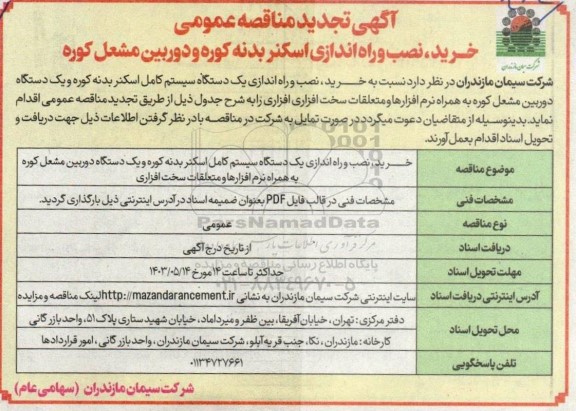 آگهی تجدید مناقصه عمومی
خرید، نصب و راه اندازی اسکنر بدنه کوره و دوربین مشعل کوره
شرکت سیمان مازندران
شرکت سیمان مازندران در نظر دارد نسبت به خرید، نصب و راه اندازی یک دستگاه سیستم کامل اسکنر بدنه کوره و یک دستگاه
دوربین مشعل کوره به همراه نرم افزارها و متعلقات سخت افزاری افزاری را به شرح جدول ذیل از طریق تجدید مناقصه عمومی اقدام
نماید. بدینوسیله از متقاضیان دعوت میگردد در صورت تمایل به شرکت در مناقصه با در نظر گرفتن اطلاعات ذیل جهت دریافت و
تحویل اسناد اقدام بعمل آورند.
موضوع مناقصه
خرید، نصب و راه اندازی یک دستگاه سیستم کامل اسکنر بدنه کوره و یک دستگاه دوربین مشعل کوره
به همراه نرم افزارها و متعلقات سخت افزاری
مشخصات فنی
مشخصات فنی در قالب فایل PDF بعنوان ضمیمه اسناد در آدرس اینترنتی ذیل بارگذاری گردید.
نوع مناقصه
عمومی
دریافت اسناد
از تاریخ درج آگهی
مهلت تحویل اسناد
حداکثر تا ساعت ۱۴ مورخ ۱۴۰۳/۰۵/۱۴
آدرس اینترنتی دریافت اسناد
سایت اینترنتی شرکت سیمان مازندران به نشانی http://mazandarancement.ir لینک مناقصه و مزایده
محل تحویل اسناد
دفتر مرکزی: تهران، خیابان آفریقا، بین ظفر و میرداماد، خیابان شهید ستاری پلاک ۵۱، واحد بازرگانی
کارخانه: مازندران، نکا، جنب قریه آبلو، شرکت سیمان مازندران، واحد بازرگانی، امور قراردادها
تلفن پاسخگویی
۰۱۱۳۴۷۲۷۶۶۱
شرکت سیمان مازندران (سهامی عام)
ParsNamadData
پایگاه اطلاع رسانی مناقصه و مزایده
۰۲۱-۸۸۳۴۹۶۷۰-۵